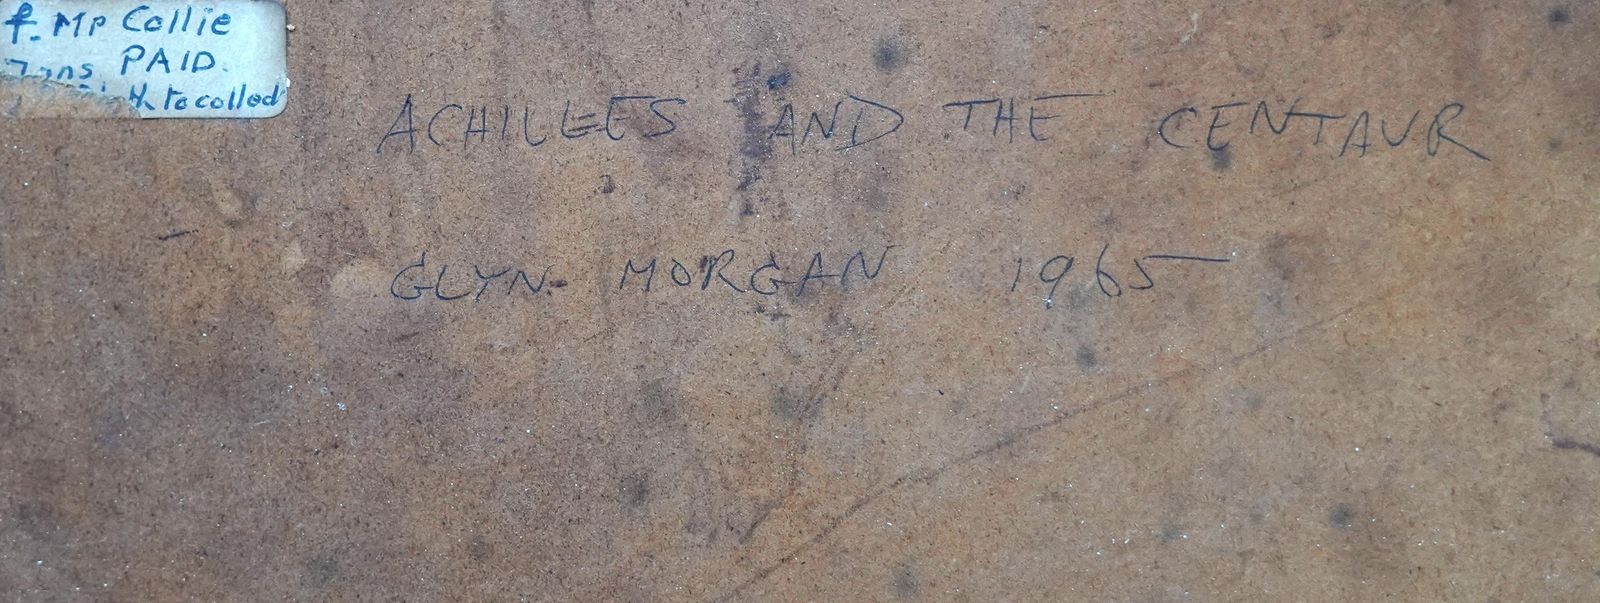 f. Mr Collie
7gns PAID.
to collect
ACHILLES AND THE CENTAUR
GLYN MORGAN 1965